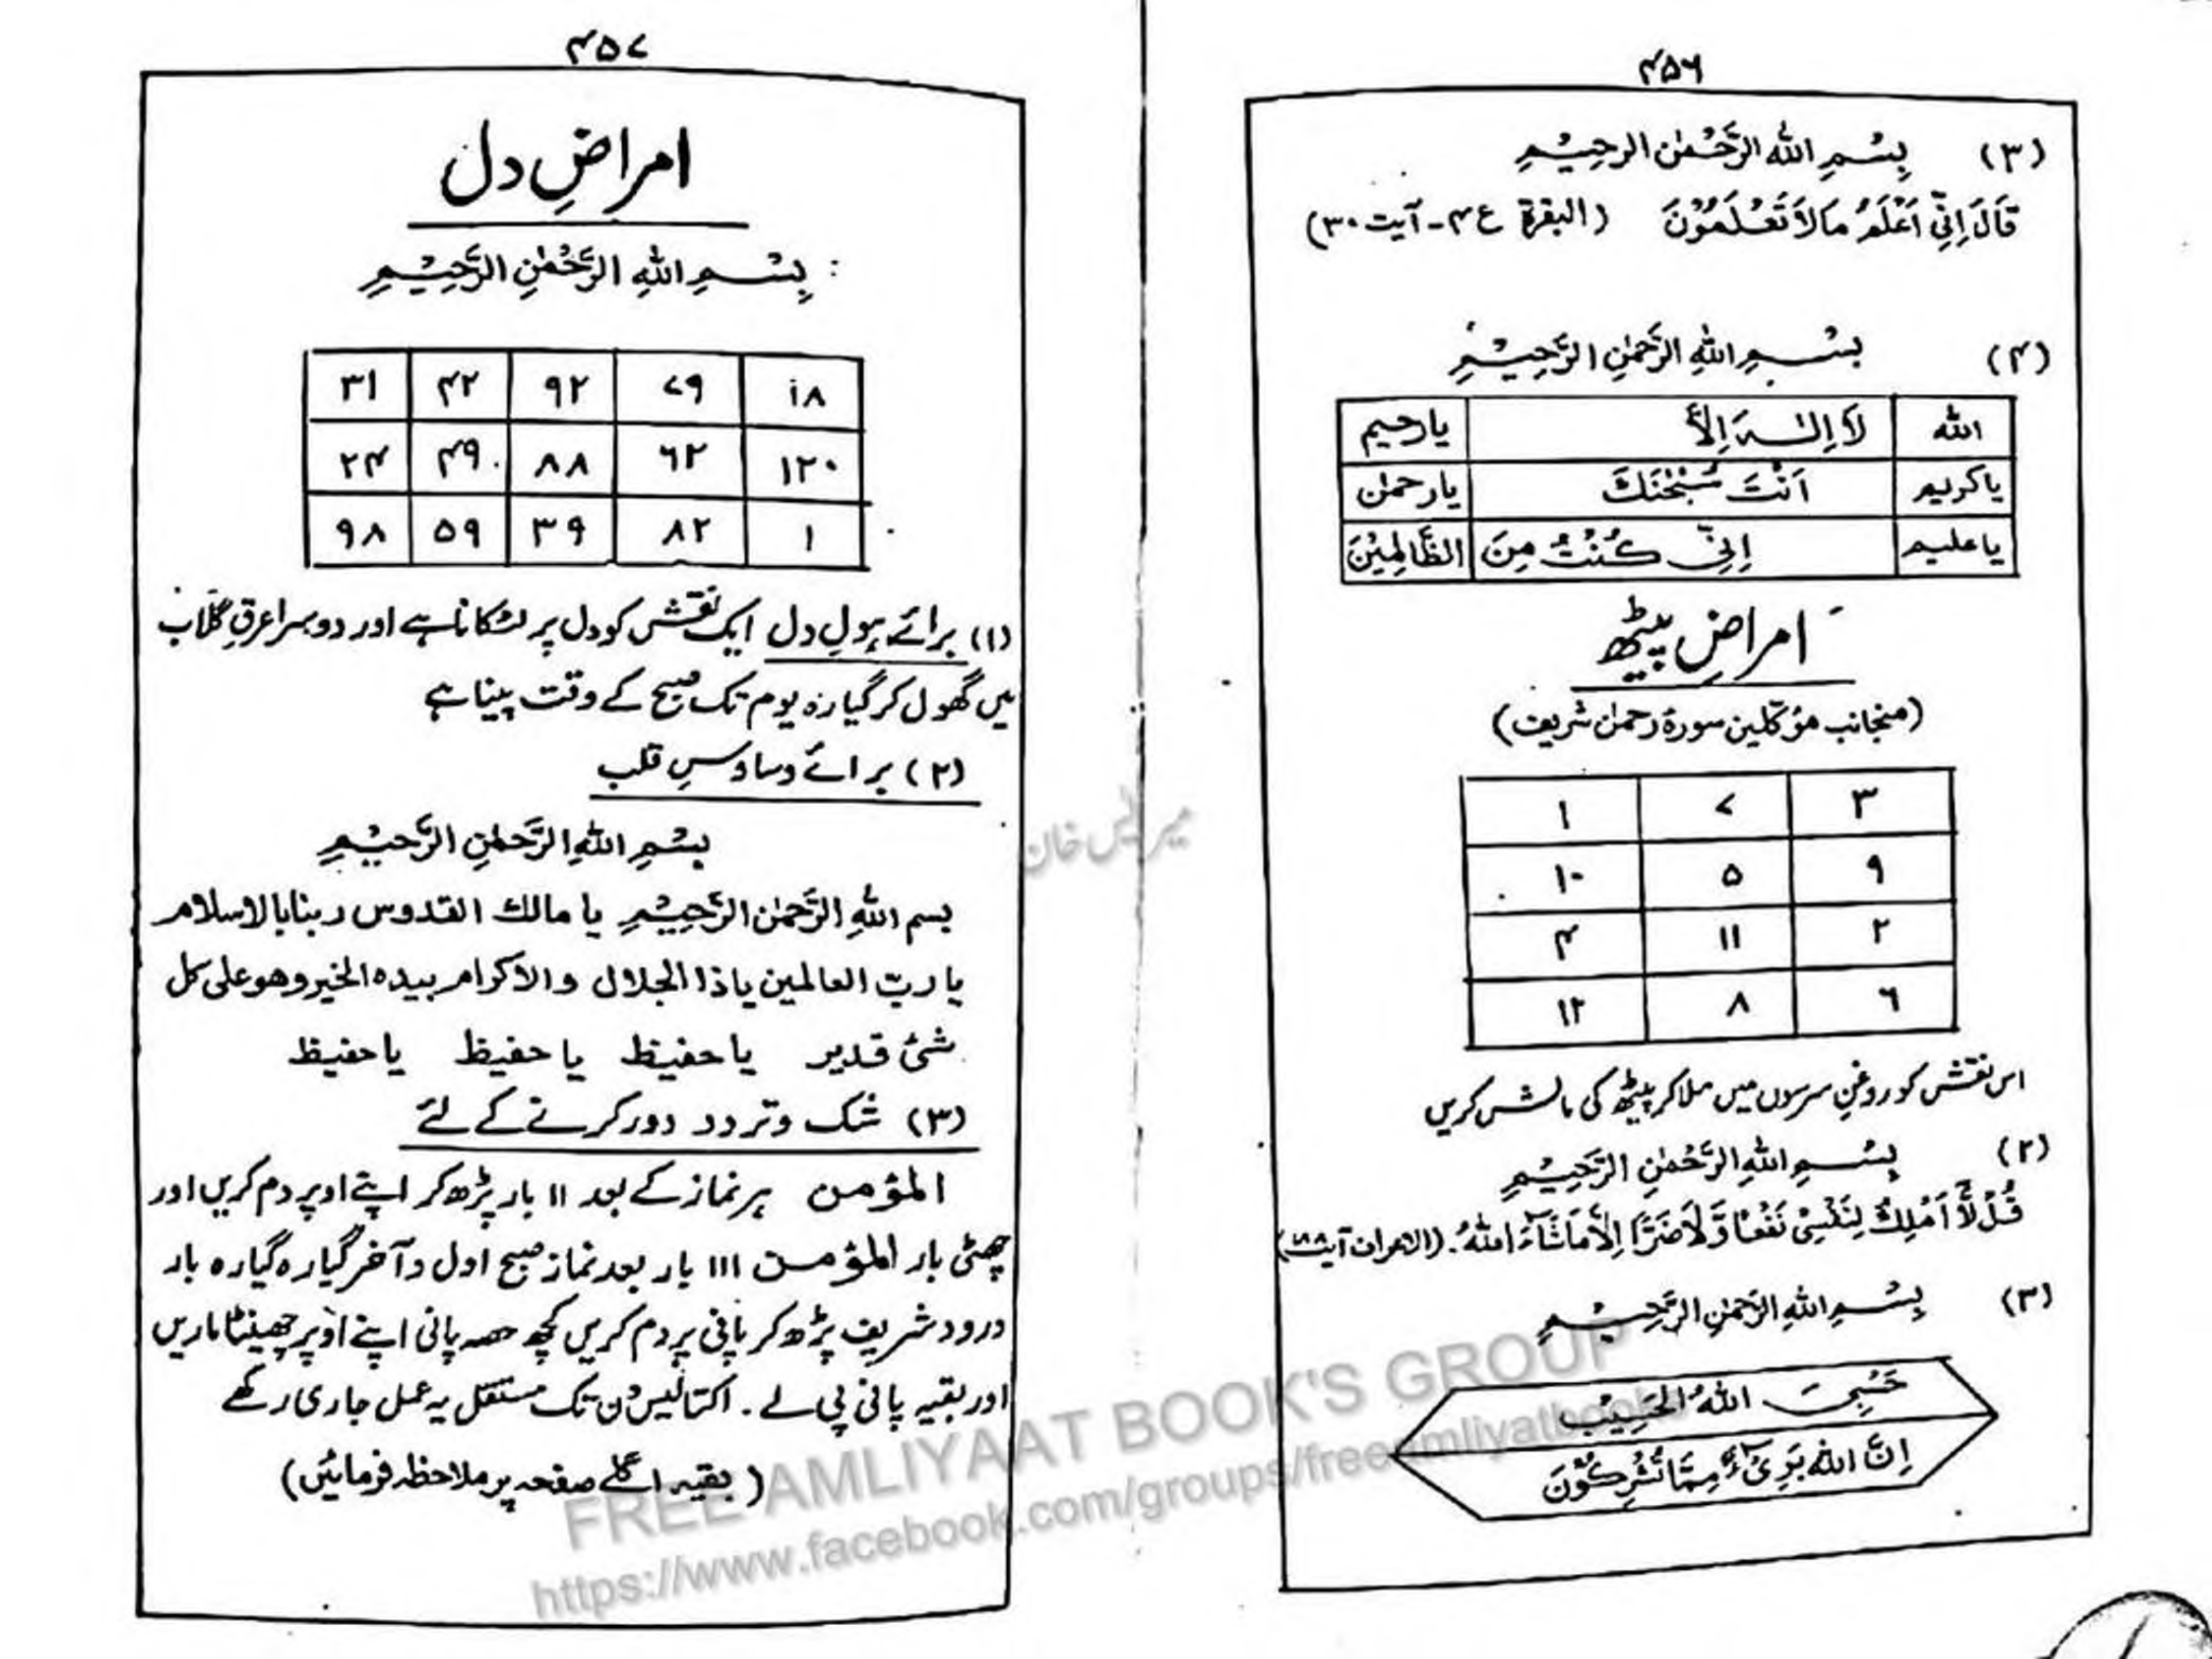 ۴۵۶
(۳) بِسْمِ اللهِ الرَّحْمٰنِ الرحِيْمِ
قَالَ اِنِّیْ اَعْلَمُ مَالَا تَعْلَمُوْنَ (البقرۃ ع۴ - آیت ۳۰)
(۴) بِسْمِ اللهِ الرَّحْمٰنِ الرَّحِيْمِ
الله لَا اِلٰهَ اِلَّا یارحیم
یاکریم اَنْتَ سُبْحٰنَكَ یارحمٰن
یاعلیم اِنِّیْ كُنْتُ مِنَ الظَّالِمِیْنَ
امراضِ پیٹھ
(منجانب مؤکلین سورۂ رحمٰن شریف)
۳ ۷ ۱
۹ ۵ ۱۰
۲ ۱۱ ۴
۶ ۸ ۱۲
اس نقش کو روغنِ سرسوں میں ملا کر پیٹھ کی مالش کریں
(۲) بِسْمِ اللهِ الرَّحْمٰنِ الرَّحِيْمِ
قُلْ لَّا اَمْلِكُ لِنَفْسِیْ نَفْعًا وَّلَا ضَرًّا اِلَّا مَا شَآءَ اللهُ۔ آیت ۱۸۸)
(۳) بِسْمِ اللهِ الرَّحْمٰنِ الرَّحِيْمِ
حَسْبِیَ اللهُ الْحَسِیْبُ
اِنَّ اللهَ بَرِیْءٌ مِّمَّا تُشْرِكُوْنَ
۴۵۷
امراضِ دل
بِسْمِ اللهِ الرَّحْمٰنِ الرَّحِيْمِ
۱۸ ۷۹ ۹۲ ۴۲ ۳۱
۱۲۰ ۶۲ ۸۸ ۴۹ ۲۴
۱ ۸۲ ۳۹ ۵۹ ۹۸
(۱) برائے ہولِ دل ایک نقش کو دل پر لٹکانا ہے اور دوسرا عرقِ گلاب
میں گھول کر گیارہ یوم تک صبح کے وقت پینا ہے
(۲) برائے وساوسِ قلب
بِسْمِ اللهِ الرَّحْمٰنِ الرَّحِيْمِ
بسم اللهِ الرَّحْمٰنِ الرَّحِيْمِ یا مالك القدوس ربنا بالاسلام
یا ربّ العالمین یا ذا الجلال والاکرام بیده الخیر وهو علی کل
شئ قدیر یا حفیظ یا حفیظ یا حفیظ
(۳) شک و تردد دور کرنے کے لئے
المؤمن ہر نماز کے بعد ۱۱ بار پڑھ کر اپنے اوپر دم کریں اور
چھٹی بار المؤمن ۱۱۱ بار بعد نماز صبح اول و آخر گیارہ گیارہ بار
درود شریف پڑھ کر پانی پر دم کریں کچھ حصہ پانی اپنے اوپر چھینٹا ماریں
اور بقیہ پانی پی لے۔ اکتالیس دن تک مستقل یہ عمل جاری رکھے
(بقیہ اگلے صفحہ پر ملاحظہ فرمائیں)
FREE AMLIYAAT BOOK'S GROUP
https://www.facebook.com/groups/freeamliyatbooks